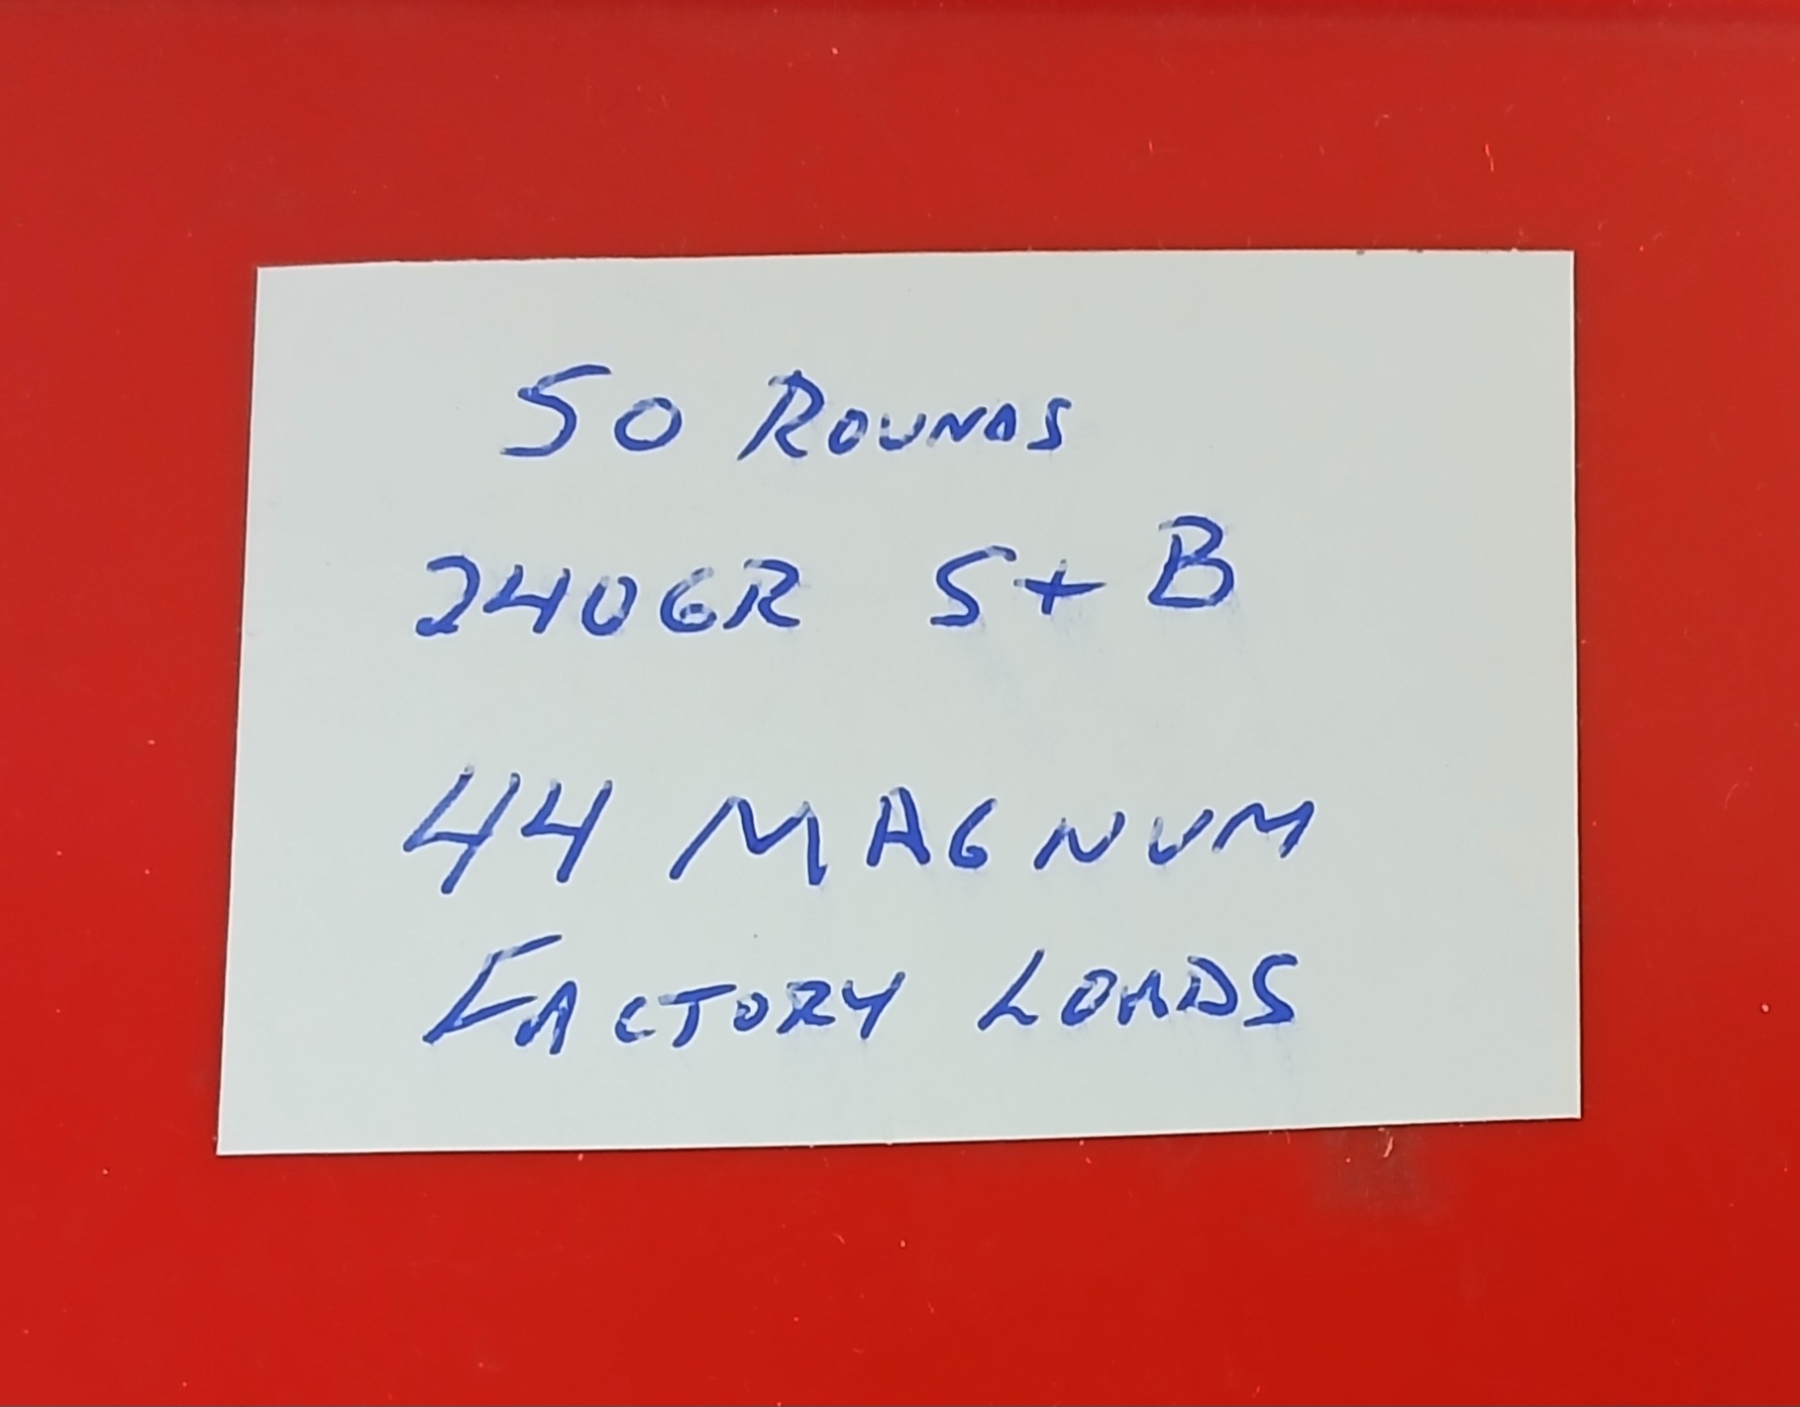 50 ROUNDS
240GR S+B
44 MAGNUM
FACTORY LOADS